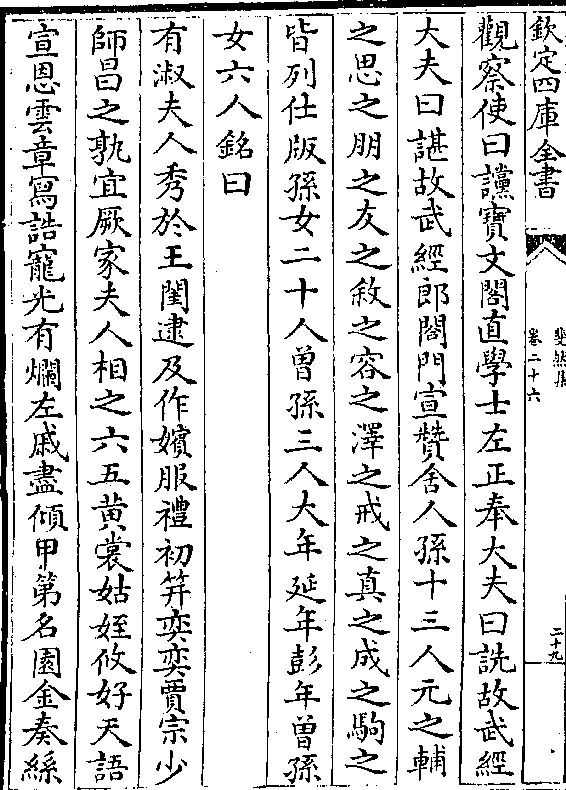 欽定四庫全書
斐然集
卷二十六
二十九
觀察使曰讜寶文閣直學士左正奉大夫曰詵故武經
大夫曰諶故武經郎閤門宣贊舍人孫十三人元之輔
之思之朋之友之敘之容之澤之戒之真之成之駒之
皆列仕版孫女二十人曾孫三人大年延年彭年曾孫
女六人銘曰
有淑夫人秀於王閨逮及作嬪服禮初笄奕奕賈宗少
師昌之孰宜厥家夫人相之六五黄裳姑姪攸好天語
宣恩雲章寫誥寵光有爛左戚盡傾甲第名園金奏絲